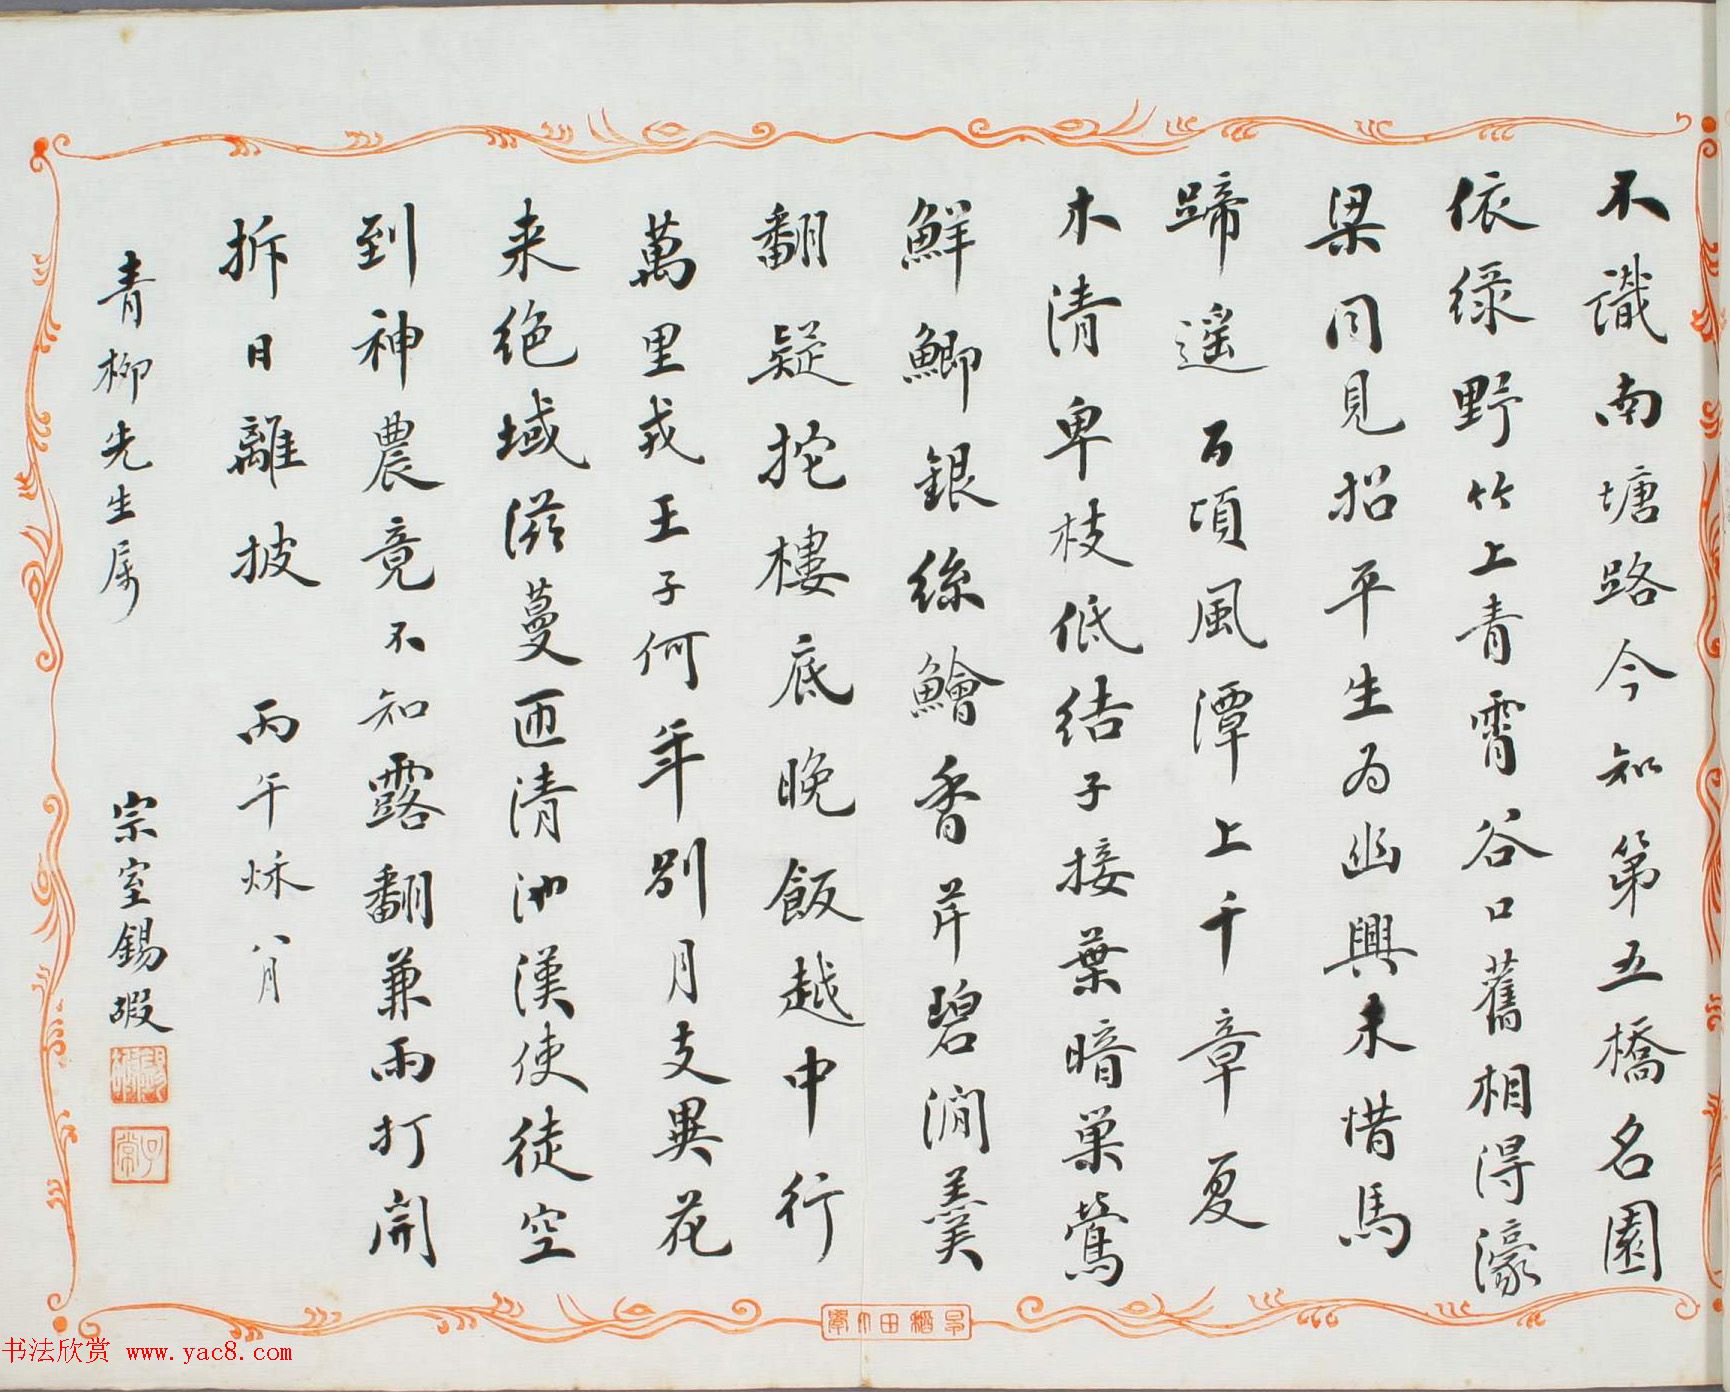 不識南塘路今知第五橋名園
依綠野竹上青霄谷口舊相得濠
梁同見招平生為幽興未惜馬
蹄遥百頃風潭上千章夏
木清卑枝低結子接葉暗巢鶯
鮮鯽銀絲鱠香芹碧澗羹
翻疑柁樓底晚飯越中行
萬里戎王子何年別月支異花
来絕域滋蔓匝清池漢使徒空
到神農竟不知露翻兼雨打開
拆日離披
丙午秌八月
青柳先生属
宗室錫嘏
早稻田大學
书法欣赏 www.yac8.com